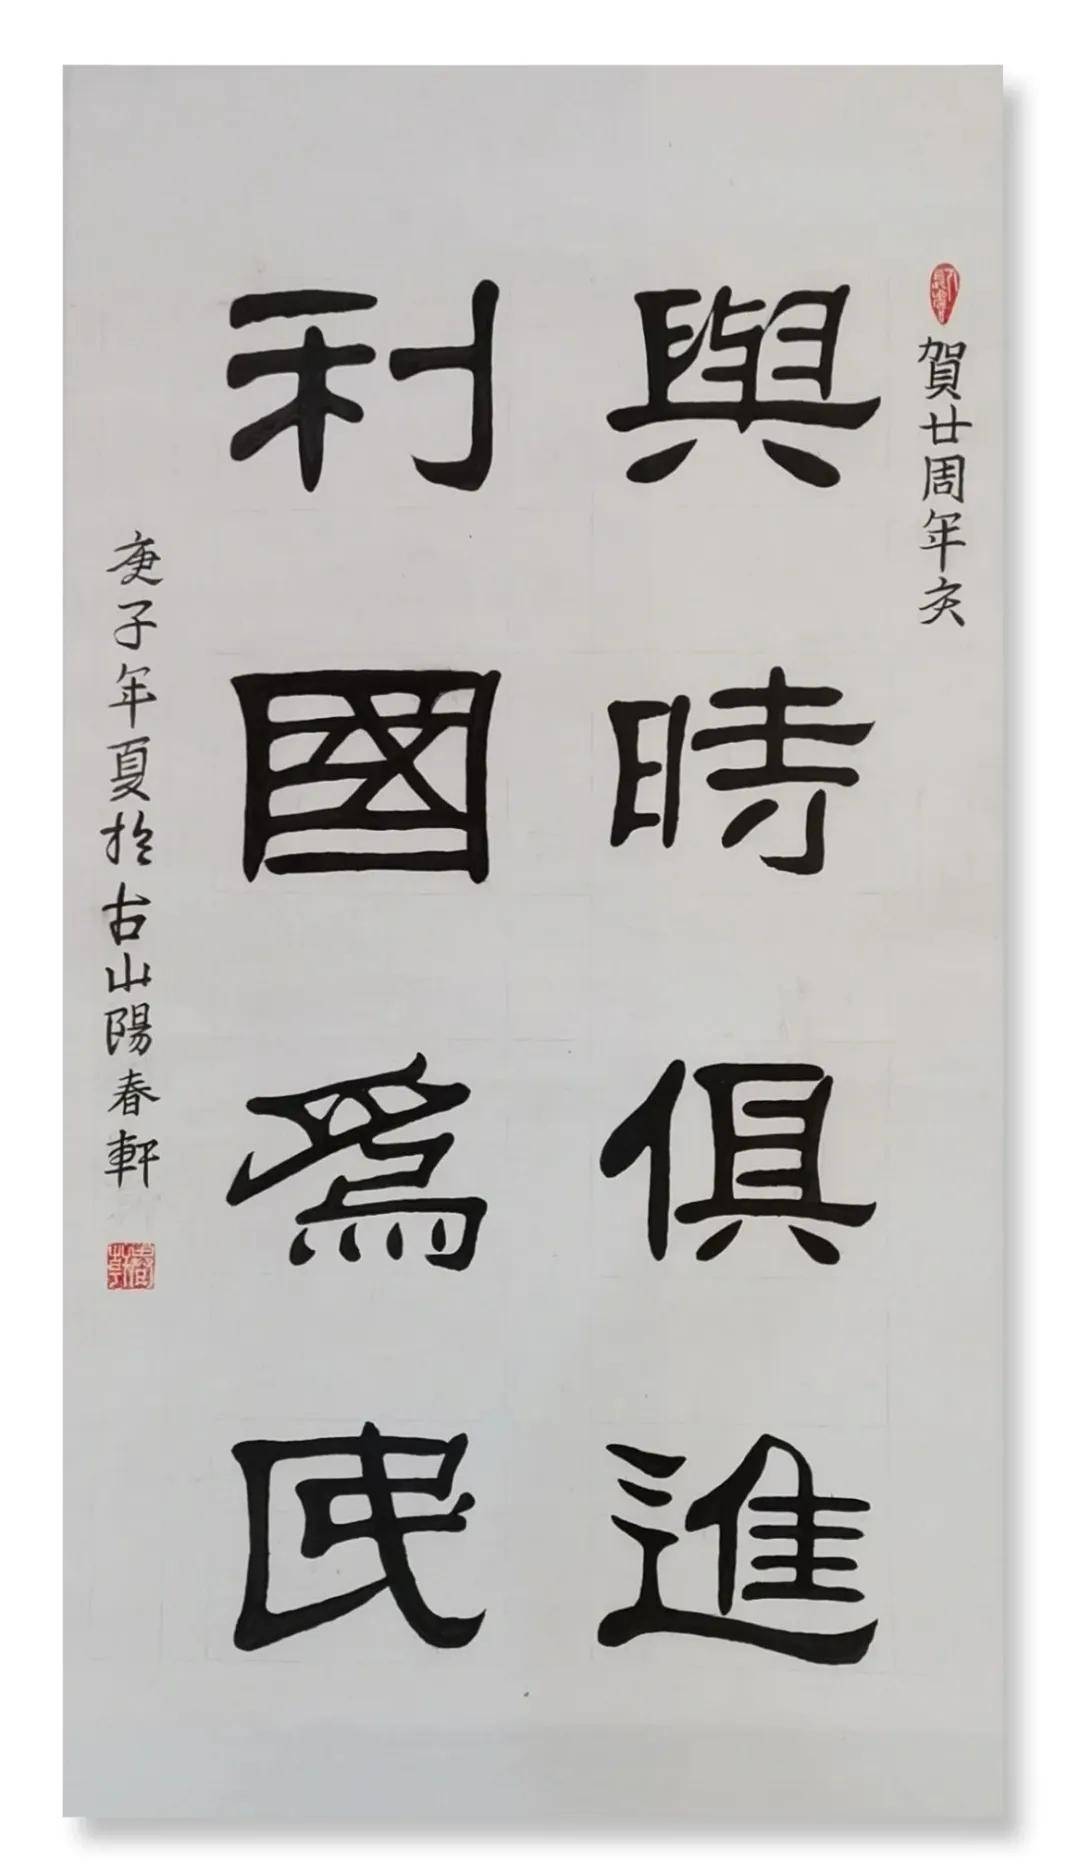 賀廿周年交
與時俱進
利國為民
庚子年夏於古山陽春軒